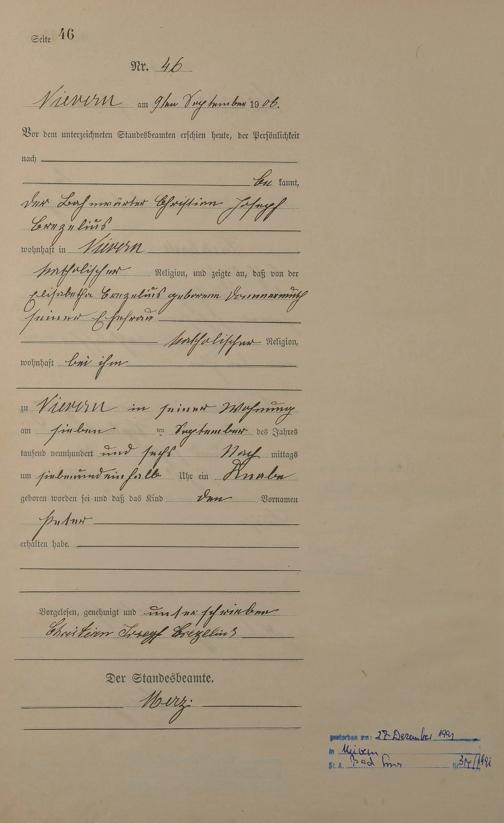 Seite 46
Nr. 46
Nievern am 9ten September 1906.
Vor dem unterzeichneten Standesbeamten erschien heute, der Persönlichkeit
nach
be kannt,
der Bahnwärter Christian Joseph
Brezelius
wohnhaft in Nievern
katholischer Religion, und zeigte an, daß von der
Elisabetha Brezelius geborenen Dommermuth
seiner Ehefrau
katholischer Religion,
wohnhaft bei ihm
zu Nievern in seiner Wohnung
am sieben ten September des Jahres
tausend neunhundert und sechs Nach mittags
um siebenundeinhalb Uhr ein Knabe
geboren worden sei und daß das Kind den Vornamen
Peter
erhalten habe.
Vorgelesen, genehmigt und unterschrieben
Christian Josepf Brezelius
Der Standesbeamte.
Merz.
gestorben am: 27. Dezember 1991
in Nievern
St. A. Bad Ems Nr.